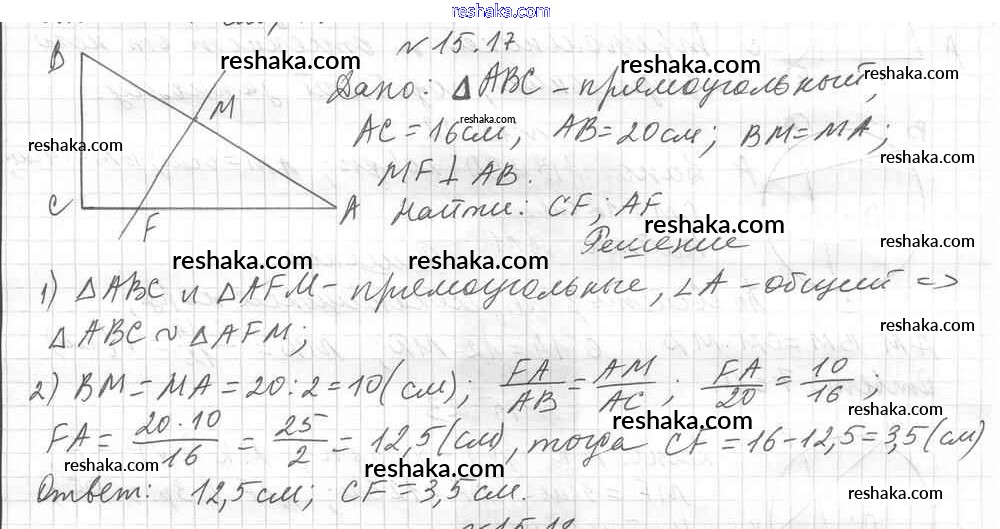 reshaka.com
№ 15.17
B
reshaka.com reshaka.com
Дано: △ABC - прямоугольный,
reshaka.com
M
reshaka.com
AC = 16см, AB = 20см; BM = MA;
reshaka.com
reshaka.com
MF ⊥ AB.
C
F
A
Найти: CF; AF
reshaka.com
Решение
reshaka.com
reshaka.com reshaka.com
1) △ABC и △AFM - прямоугольные, ∠A - общий =>
△ABC ~ △AFM;
reshaka.com
2) BM = MA = 20:2 = 10 (см); FA/AB = AM/AC; FA/20 = 10/16;
reshaka.com reshaka.com
FA = 20·10/16 = 25/2 = 12,5 (см), тогда CF = 16 - 12,5 = 3,5 (см)
reshaka.com reshaka.com
Ответ: 12,5 см; CF = 3,5 см.
reshaka.com
№ 15.18
reshaka.com